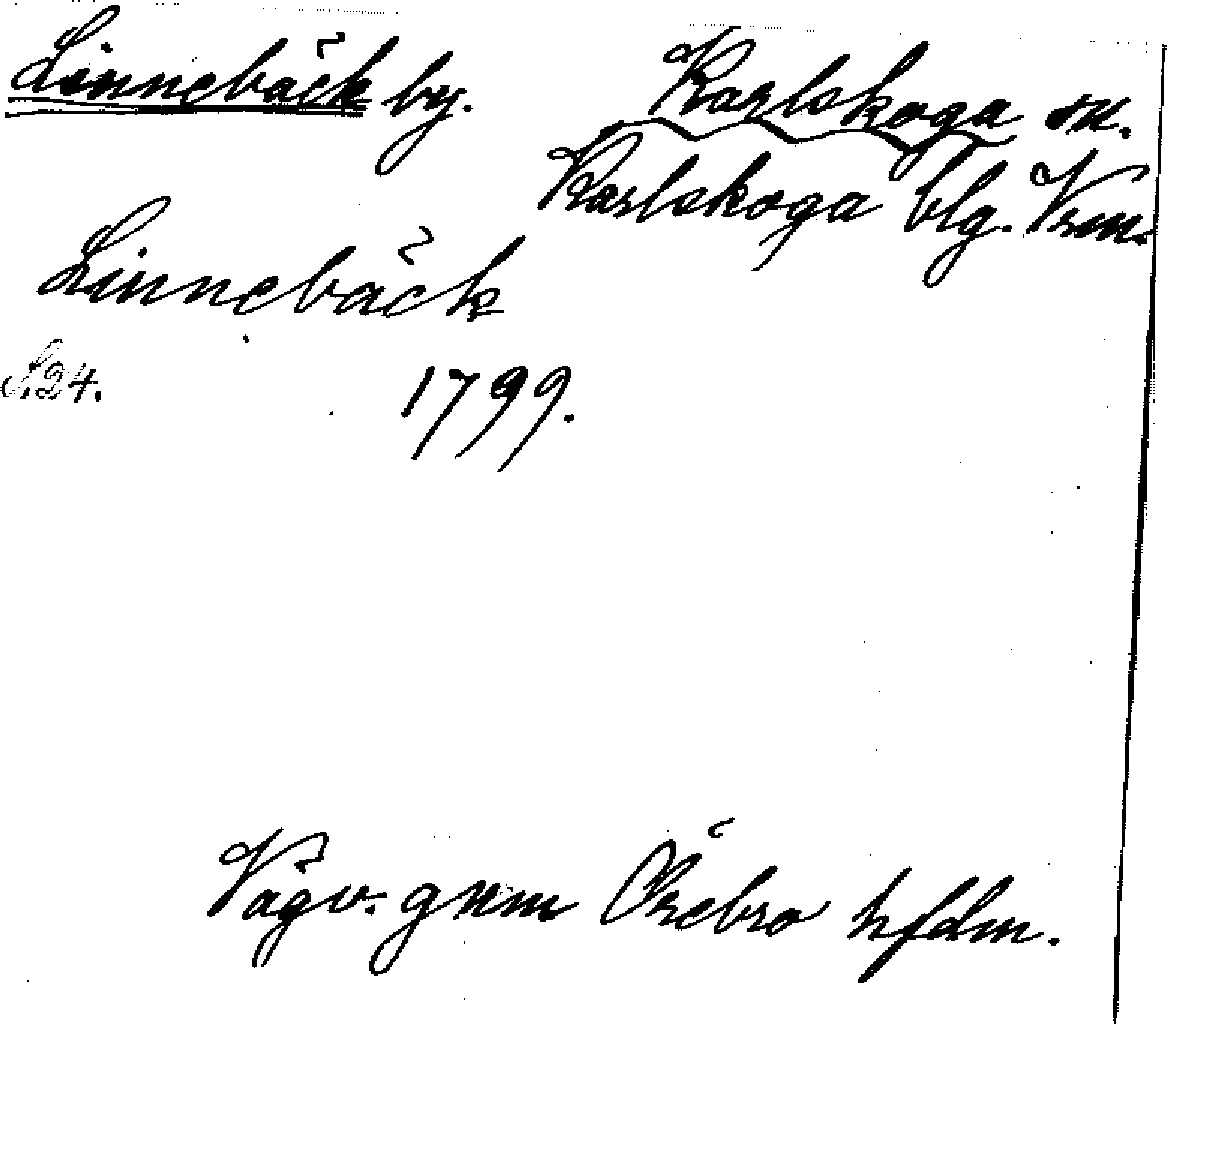 Linnebäck by.
Karlskoga sn.
Karlskoga blg. Vrm.
Linnebäck
S. 24.
1799.
Vägv. gnm Örebro hfdm.